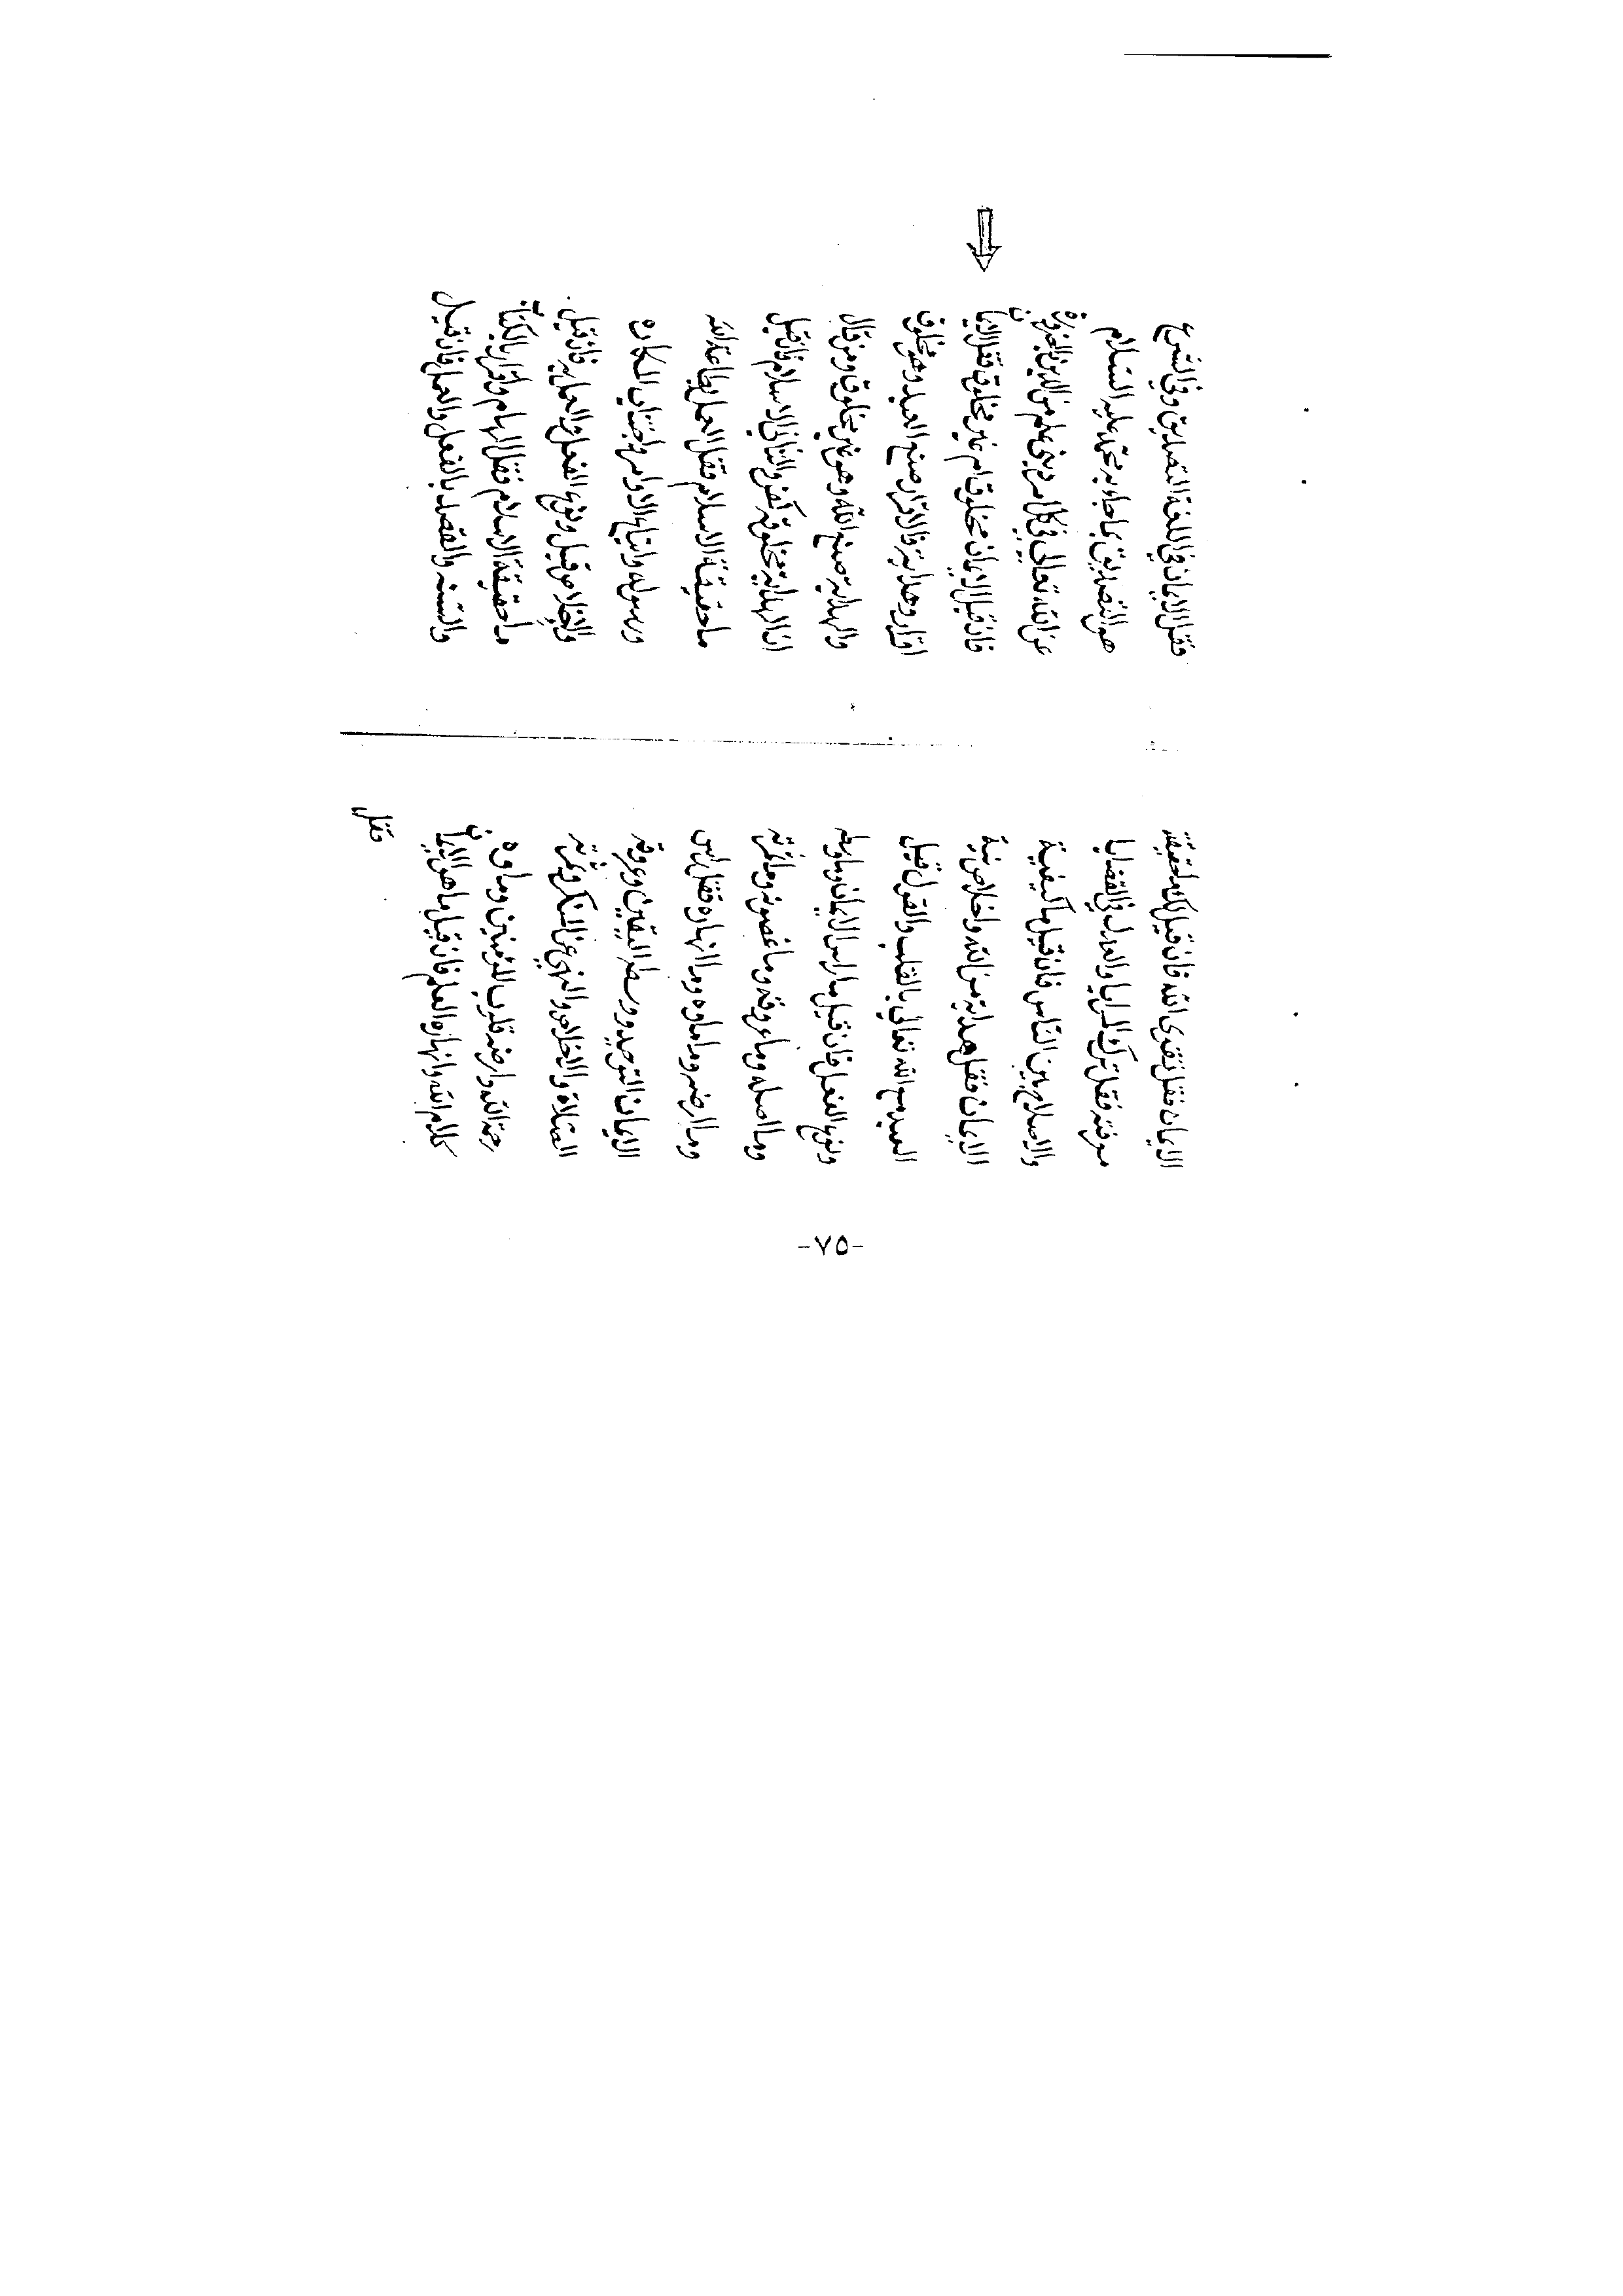 الايمان فقل تقوى الله فان قيل لك ما حقيقة
معرفته فقل ترك المرايا والعدل في القضايا
والاصلاح بين الناس فان قيل ما كيفية
الايمان فقل هداية من الله واخلاص نية
العبد مع الله تعالى بالقلب والقول قبل
وقوع الفعل فان قيل ما راس الايمان وما وسطه
وما اصله وما عروقه وما غصونه وما ثمرته
وما ارضه وما ماوه وما انهاره فقل راس
الايمان التوحيد ووسطه اليقين وعروقه
الصلاة والاخلاص والنهي عن المنكر وثمرته
رحمة الله وارضه قلوب المؤمنين وماوه
كلام الله وانهاره العلم فان قيل ما هو الايمان
فقل
فقل الايمان في اللغة التصديق وفي الشرع
هو التصديق بما جاء به محمد عليه السلام
عن الله تعالى في كل امر ديني علم من الدين بالضرورة
فان قيل الايمان مخلوق ام غير مخلوق فقل الايمان
اقرار وهداية فالاقرار صنع العبد وهو مخلوق
والهداية صنع الله وهو غير مخلوق ومن قال
ان الهداية مخلوقة كفر والثاني الاسلام فان قيل
ما حقيقة الاسلام فقل العمل بطاعة الله
ورسوله واتباع الاوامر واجتناب المكاره
والاخلاص قبل وقوع الفعل والعمل به فان قيل
ما حقيقة الاسلام فقل الهام واقرار بالكتاب
والسنة والقصد بالفعل والعمل فان قيل
-٧٥-